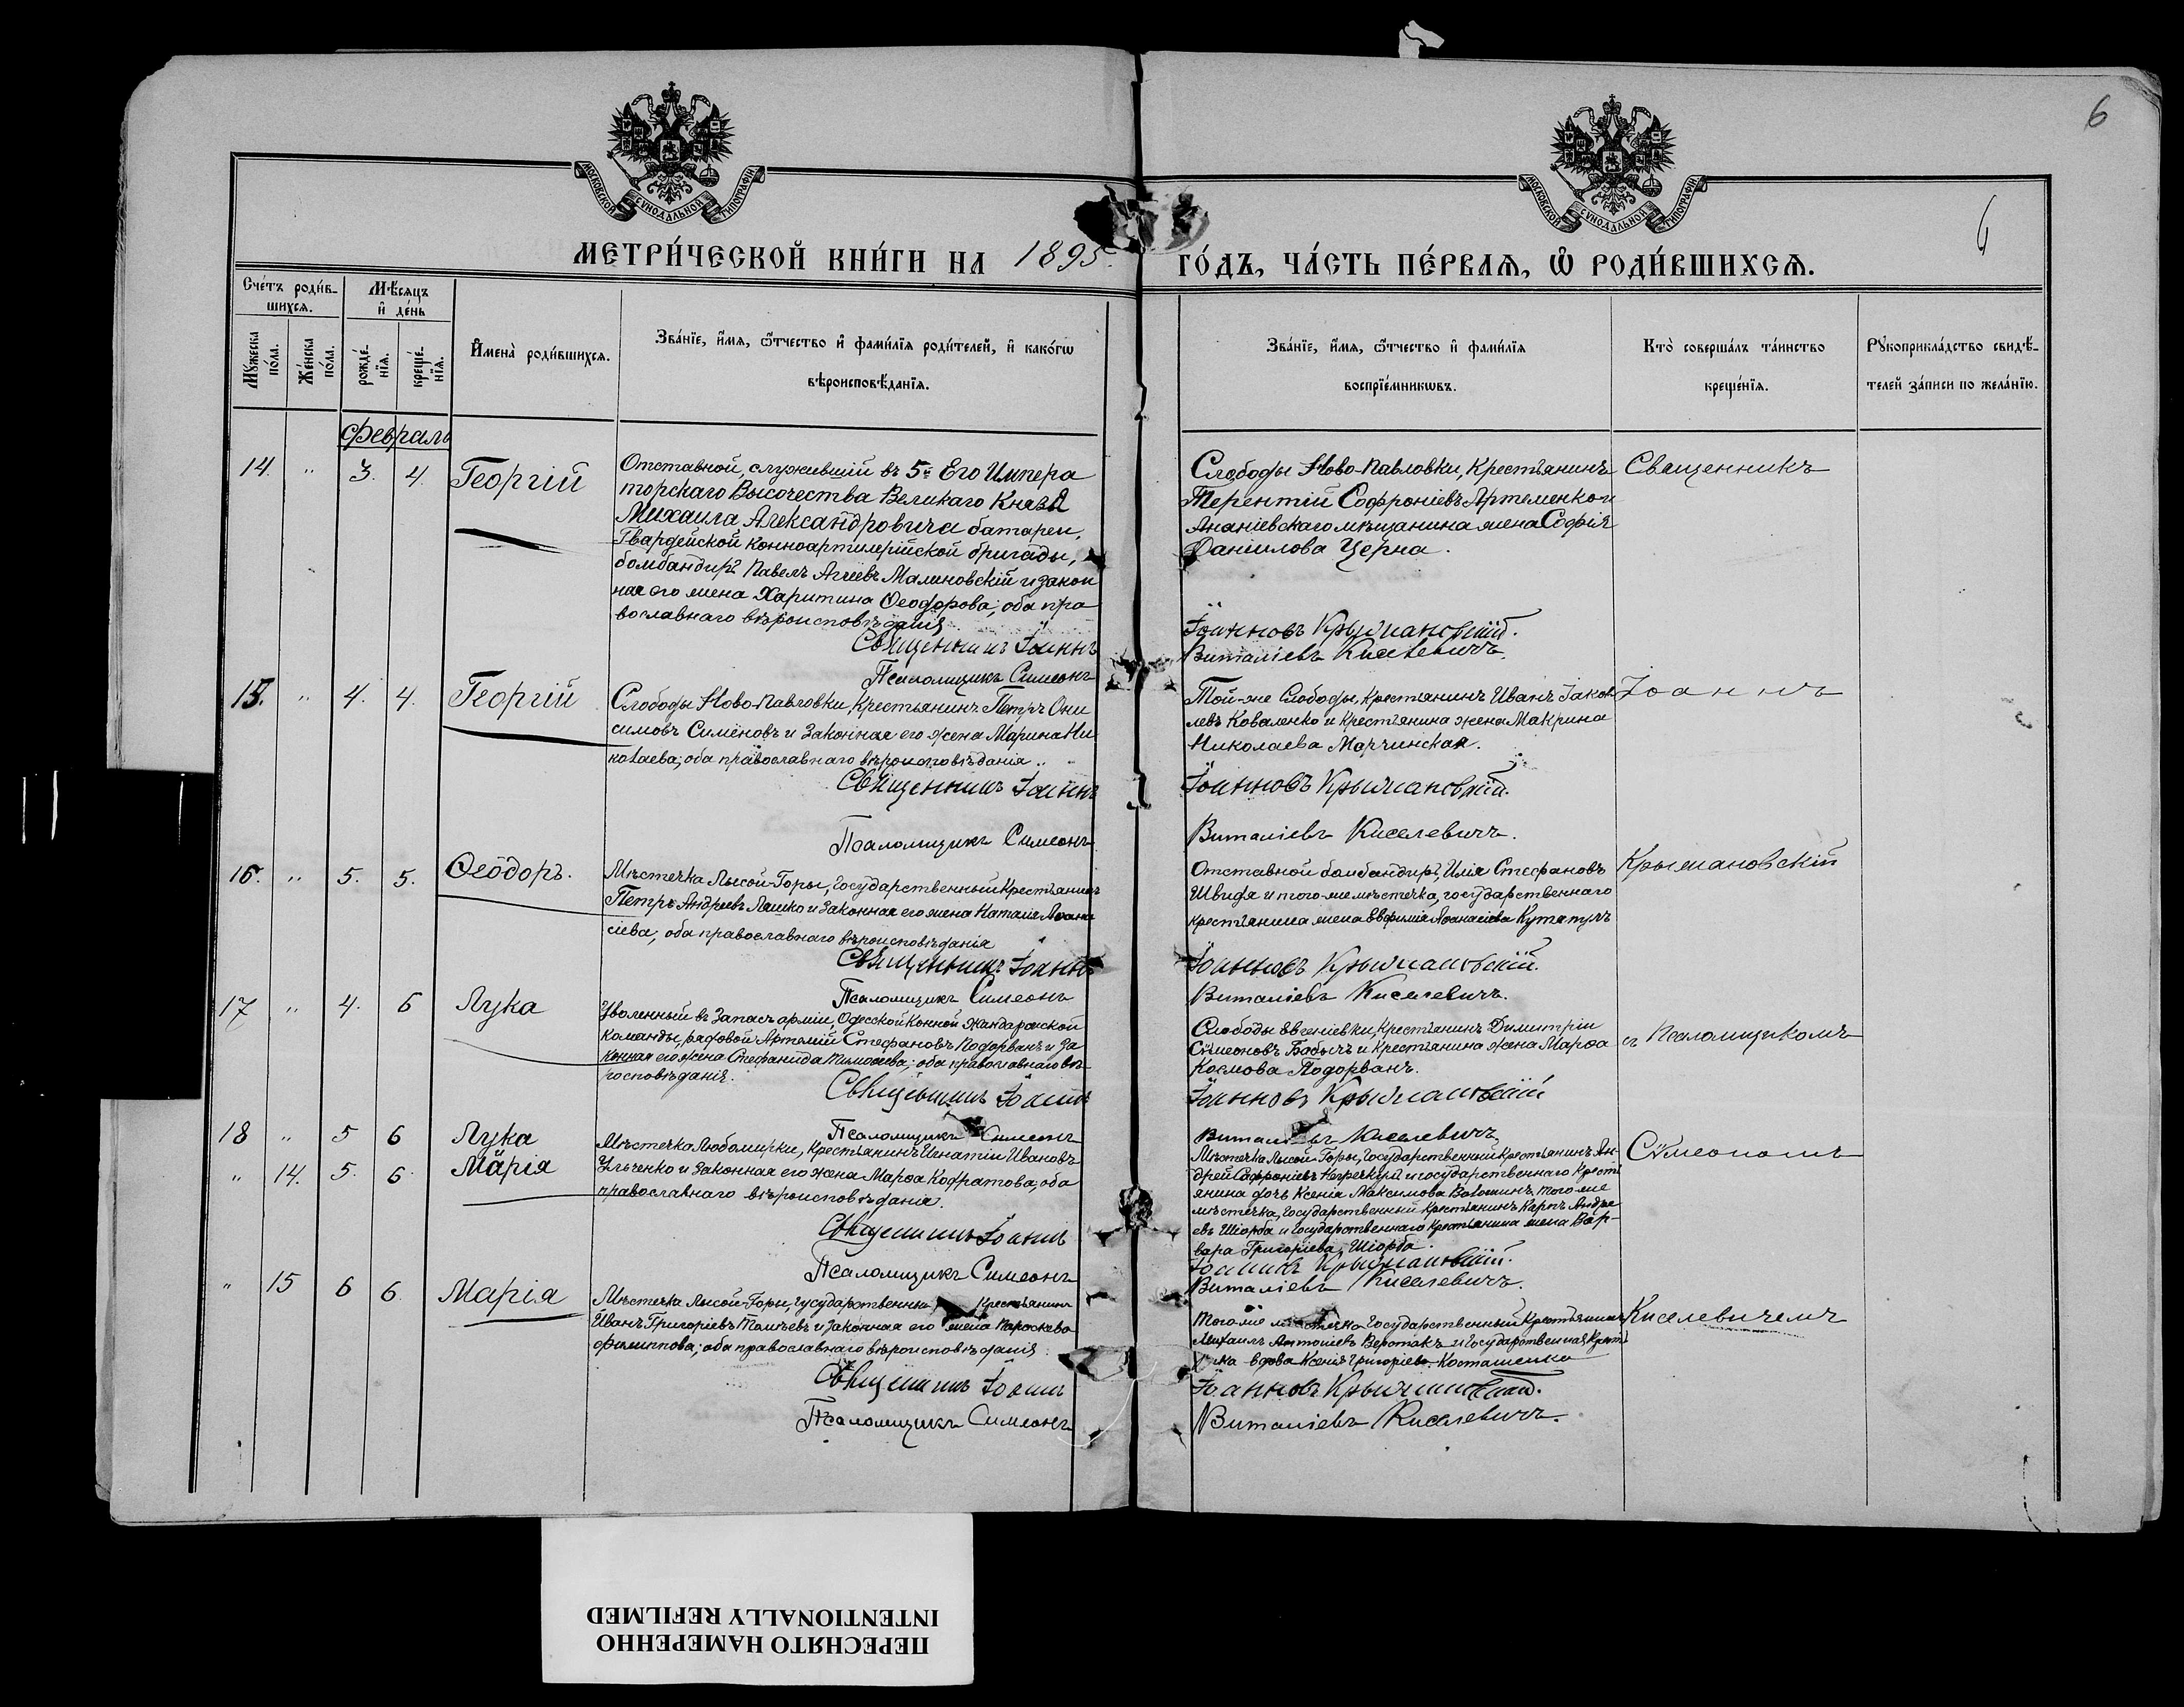 6
МОСКОВСКОЙ СУНОДАЛЬНОЙ ТИПОГРАФІИ
МОСКОВСКОЙ СУНОДАЛЬНОЙ ТИПОГРАФІИ
6
МЕТРИ́ЧЕСКОЙ КНИ́ГИ НА 1895 ГО́ДЪ, ЧА́СТЬ ПЕ́РВАѦ, Ѡ РОДИ́ВШИХСѦ.
Сче́тъ роди́в-
шихсѧ.
Мѣ́сѧцъ
и҆ де́нь
Мꙋ́жеска
по́ла.
Же́нска
по́ла.
рожде́-
нїѧ.
креще́-
нїѧ.
И҆мена̀ роди́вшихсѧ.
Зва́нїе, и҆́мѧ, ѻ҆́тчество и҆ фами́лїѧ роди́телей, и҆ како́гѡ
вѣроисповѣ́данїѧ.
Зва́нїе, и҆́мѧ, ѻ҆́тчество и҆ фами́лїѧ
воспрїе́мникѡвъ.
Кто̀ соверша́лъ та́инство
креще́нїѧ.
Рꙋкоприкла́дство свидѣ́-
телей за́писи по жела́нїю.
Февраль
14. " 3. 4. Георгій
Отставной, служившій въ 5й Его Импера
торскаго Высочества Великаго Князя
Михаила Александровича батареи,
Гвардейской конноартилерійской бригады,
бомбандиръ Павелъ Агіевъ Малиновскій и закон
ная его жена Харитина Ѳеодорова; оба пра
вославнаго вѣроисповѣданія
Священникъ Іоаннъ
Псаломщикъ Симеонъ
Слободы Ново-Павловки, Крестьянинъ
Терентій Софроніевъ Артеменко и
Ананіевскаго мѣщанина жена Софія
Даніилова Церна.
Іоанновъ Крыжановскій.
Виталіевъ Киселевичъ.
Священникъ
15. " 4. 4. Георгій
Слободы Ново-Павловки, Крестьянинъ Петръ Они
симовъ Симёновъ и Законная его жена Марина Ни
колаева; оба православнаго вѣроисповѣданія.
Священникъ Іоаннъ
Псаломщикъ Симеонъ
Той-же Слободы, Крестьянинъ Иванъ Іаков
левъ Коваленко и Крестьянина жена Макрина
Николаева Марчинская.
Іоанновъ Крыжановскій.
Виталіевъ Киселевичъ.
Іоаннъ
16. " 5. 5. Ѳеодоръ.
Мѣстечка Лысой-Горы, Государственный Крестьянинъ
Петръ Андреевъ Ляшко и Законная его жена Наталія Аѳана
сіева, оба православнаго вѣроисповѣданія
Священникъ Іоаннъ
Псаломщикъ Симеонъ
Отставной бомбандиръ, Илія Стефановъ
Швидя и того-же мѣстечка, государственнаго
крестьянина жена Евфимія Аѳанасіева
Іоанновъ Крыжановскій.
Виталіевъ Киселевичъ.
Крыжановскій
17 " 4. 6 Лука
Уволенный въ Запасъ арміи, Одесской Конной Жандармской
Команды, рядовой Артемій Стефановъ Подорванъ и За
конная его жена Стефанида Тимоѳеева; оба православнаго вѣ
роисповѣданія.
Священникъ Іоаннъ
Псаломщикъ Симеонъ
Слободы Евгеніевки, Крестьянинъ Димитрій
Сѵмеоновъ Бабычъ и Крестьянина жена Марѳа
Космова Подорванъ.
Іоанновъ Крыжановскій
Виталіевъ Киселевичъ
съ Псаломщикомъ
18 " 5 6 Лука
" 14. 5. 6. Марія
Мѣстечка Любомирки, Крестьянинъ Игнатій Ивановъ
Ульченко и Законная его жена Марѳа Кодратова, оба
православнаго вѣроисповѣданія.
Священникъ Іоаннъ
Псаломщикъ Симеонъ
Мѣстечка Лысой Горы, Государственный Крестьянинъ Ан-
дрей Софроніевъ и государственнаго Кресть
янина дочь Ксенія Максимова Волошинъ того же
мѣстечка, Государственный Крестьянинъ Карпъ Андре
евъ Шіорба и Государственнаго Крестьянина жена Вар-
вара Григоріева Шіорба.
Іоаннъ Крыжановскій.
Виталіевъ Киселевичъ.
Сѵмеономъ
" 15 6 6. Марія
Мѣстечка Лысой-Горы, Государственный Крестьянинъ
Иванъ Григоріевъ и Законная его жена Параскева
Филиппова; оба православнаго вѣроисповѣданія.
Священникъ Іоаннъ
Псаломщикъ Симеонъ
Того же мѣстечка Государственный Крестьянинъ
Михаилъ Антоніевъ и Государственная Кресть
янка вдова Ксенія Григоріева Косташенко
Іоанновъ Крыжановскій.
Виталіевъ Киселевичъ.
Киселевичемъ
ПЕРЕСНЯТО НАМЕРЕННО
INTENTIONALLY REFILMED